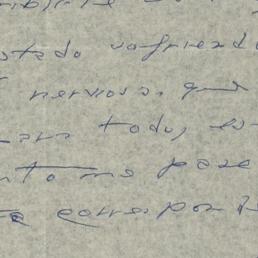 stado sufriendo
nerviosa, que
para todo, es
nto me pare
te correspon